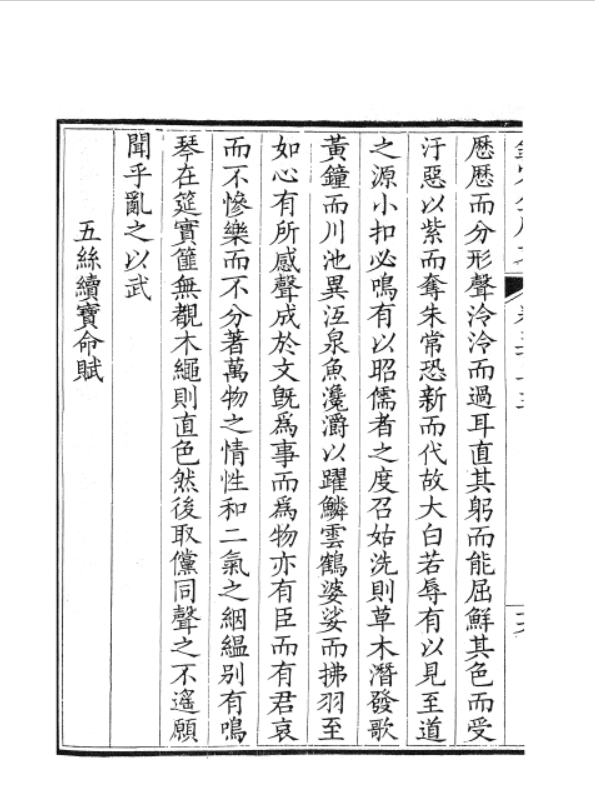 歴歴而分形聲泠泠而過耳直其躬而能屈鮮其色而受
汙惡以紫而奪朱常恐新而代故大白若辱有以見至道
之源小扣必鳴有以昭儒者之度召姑洗則草木潛發歌
黃鐘而川池異沍泉魚瀺灂以躍鱗雲鶴婆娑而拂羽至
如心有所感聲成於文旣爲事而爲物亦有臣而有君哀
而不慘樂而不分著萬物之情性和二氣之絪縕别有鳴
琴在筵實篚無覩木繩則直色然後取儻同聲之不遙願
聞乎亂之以武
五絲續寶命賦